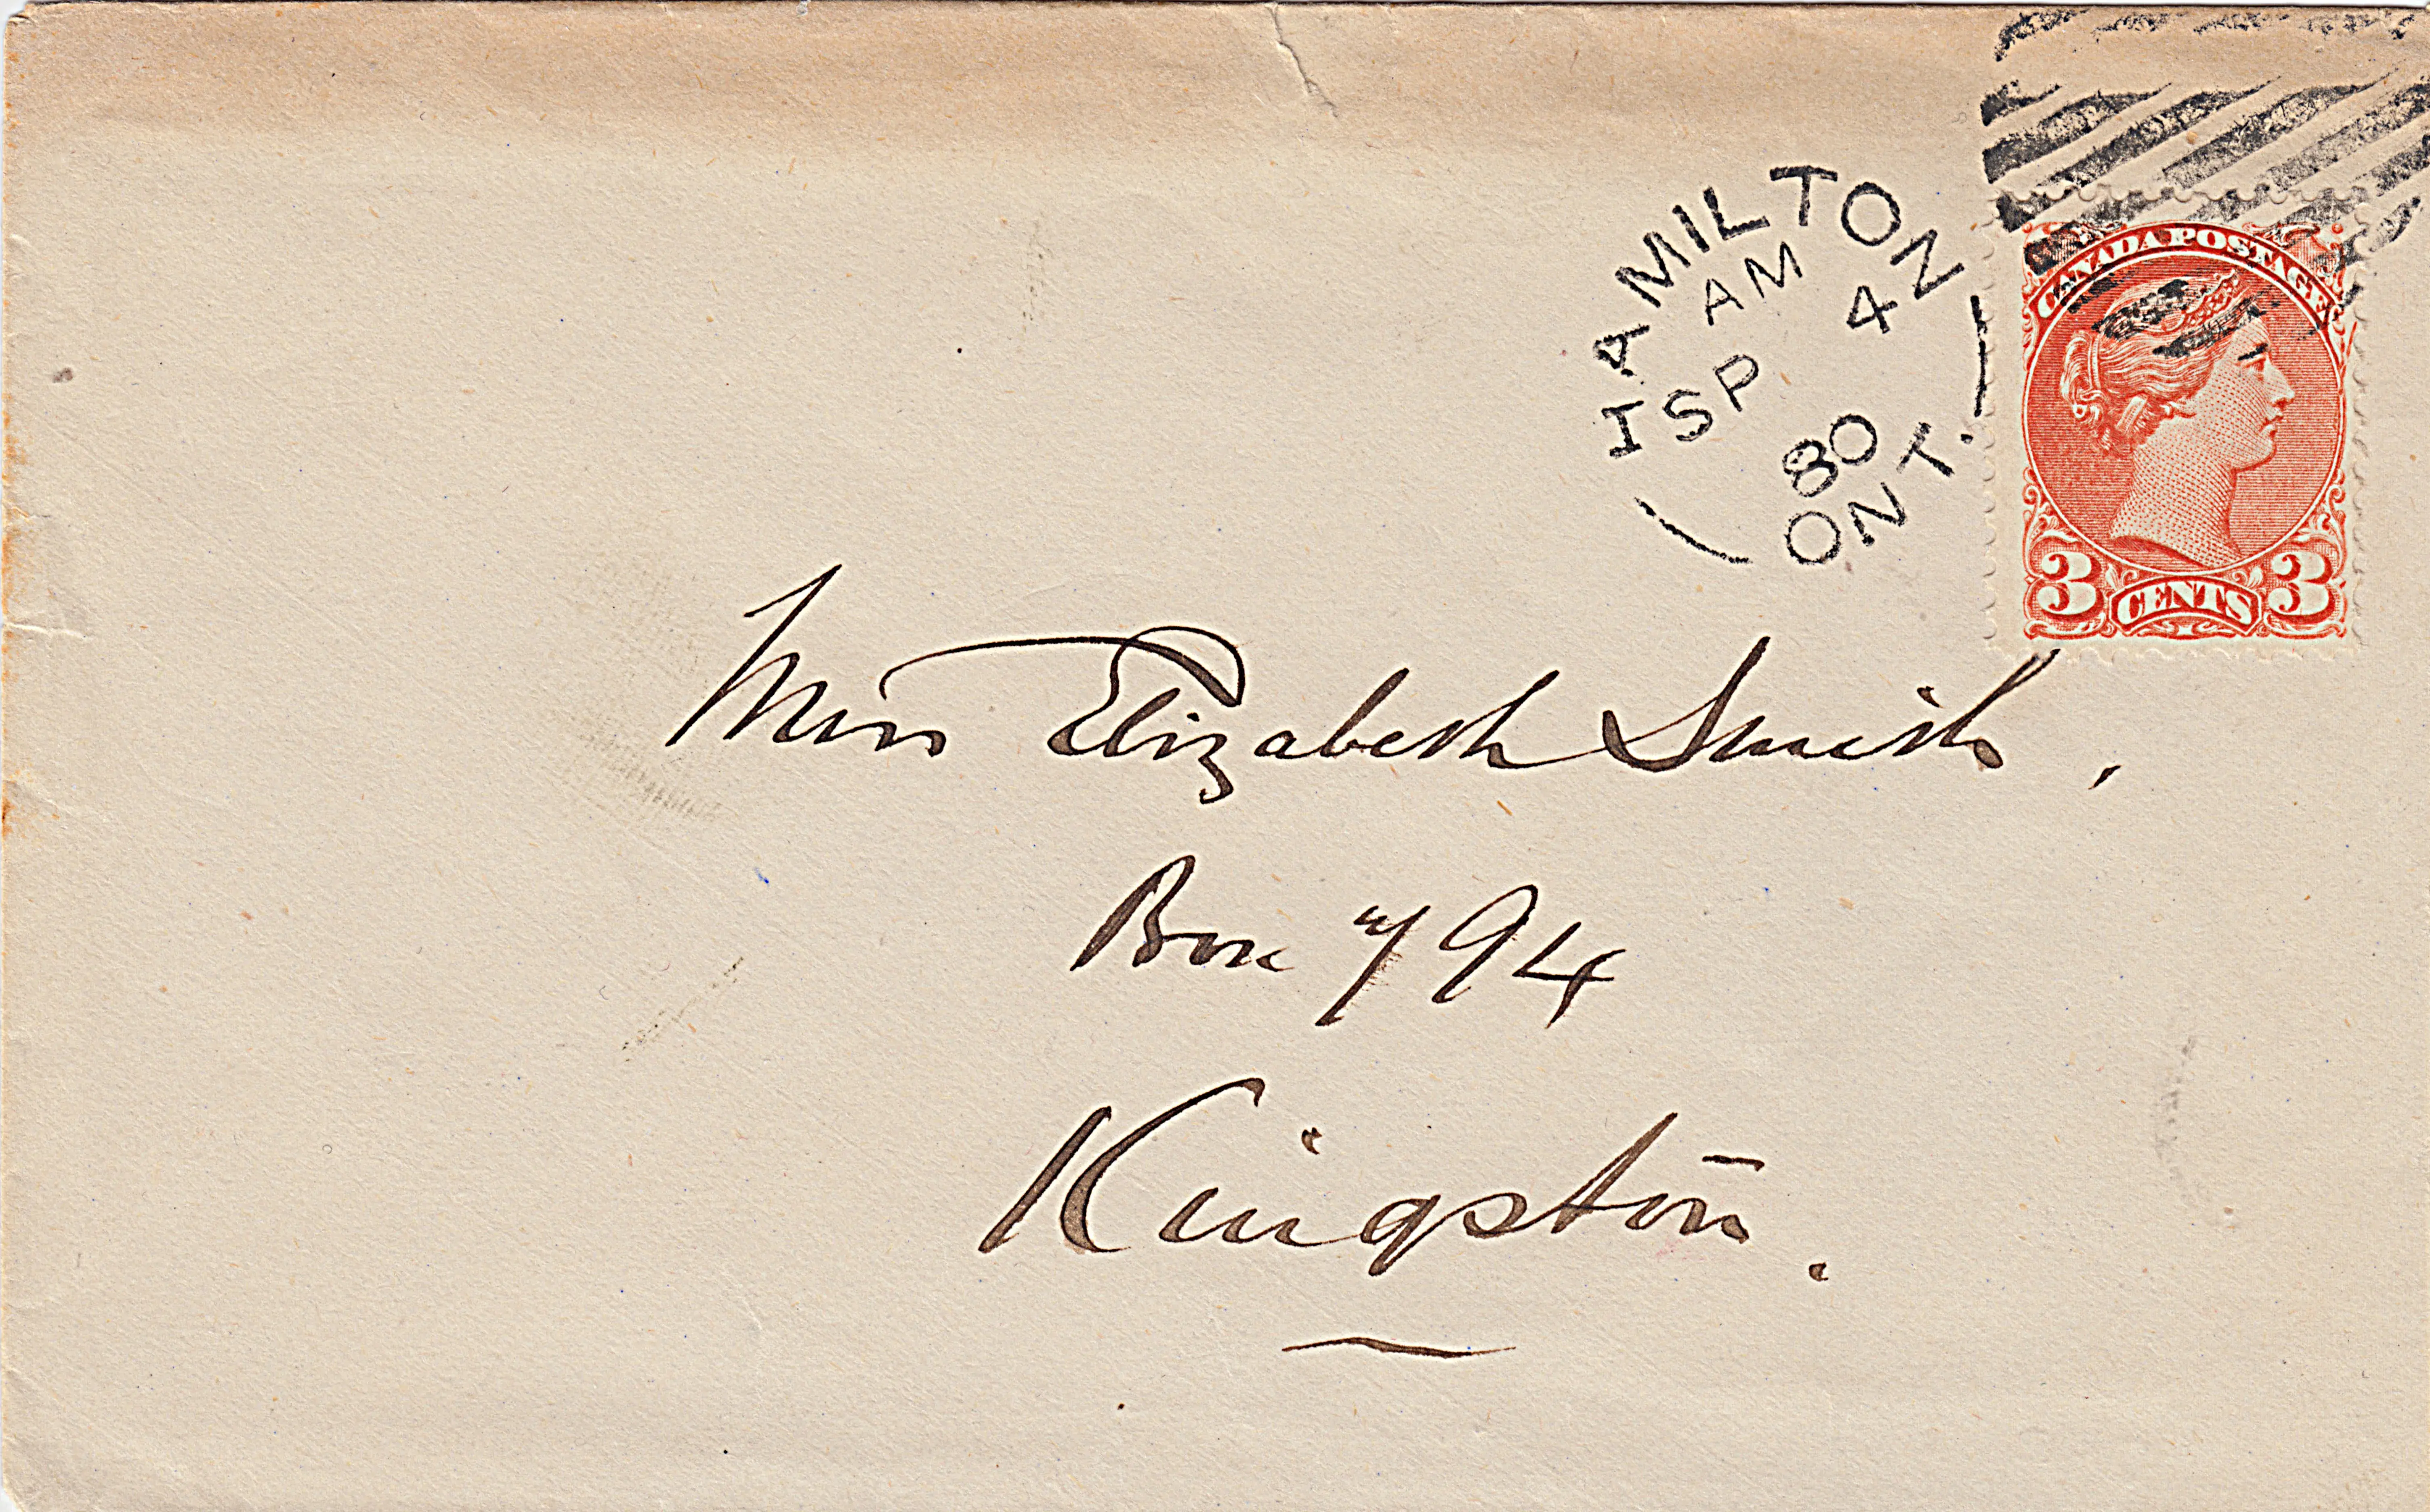 HAMILTON
AM
SP 4
80
ONT.
CANADA POSTAGE
3 CENTS 3
Miss Elizabeth Smith,
Box 794
Kingston.